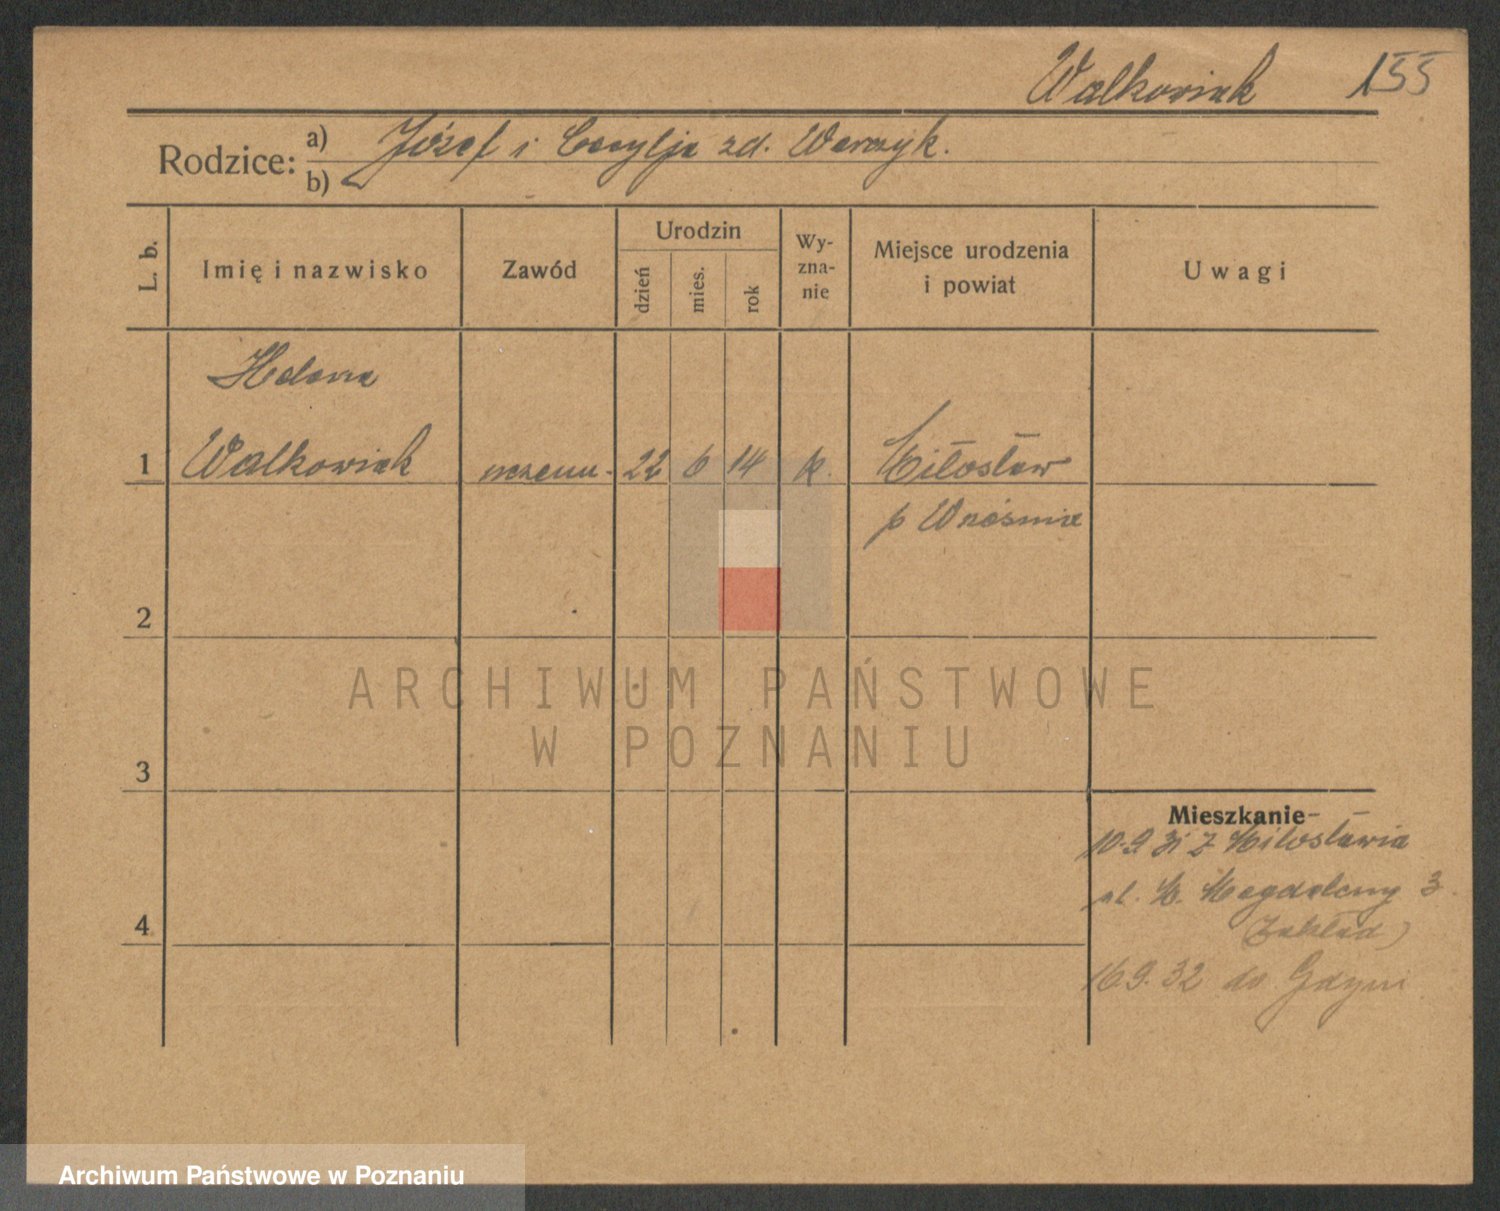 Walkowiak 155
Rodzice: a) Józef i Cecylja zd. Warczyk.
b)
L. b.
Imię i nazwisko
Zawód
Urodzin
dzień
mies.
rok
Wy-
zna-
nie
Miejsce urodzenia
i powiat
Uwagi
Helena
1 Walkowiak uczenn. 22 6 14 k. Miłosław
p Wrześnie
2
3
4
Mieszkanie
10.9.31 z Miłosławia
ul. M. Magdaleny 3
Zakład)
16.9.32 do Gdyni
ARCHIWUM PAŃSTWOWE
W POZNANIU
Archiwum Państwowe w Poznaniu